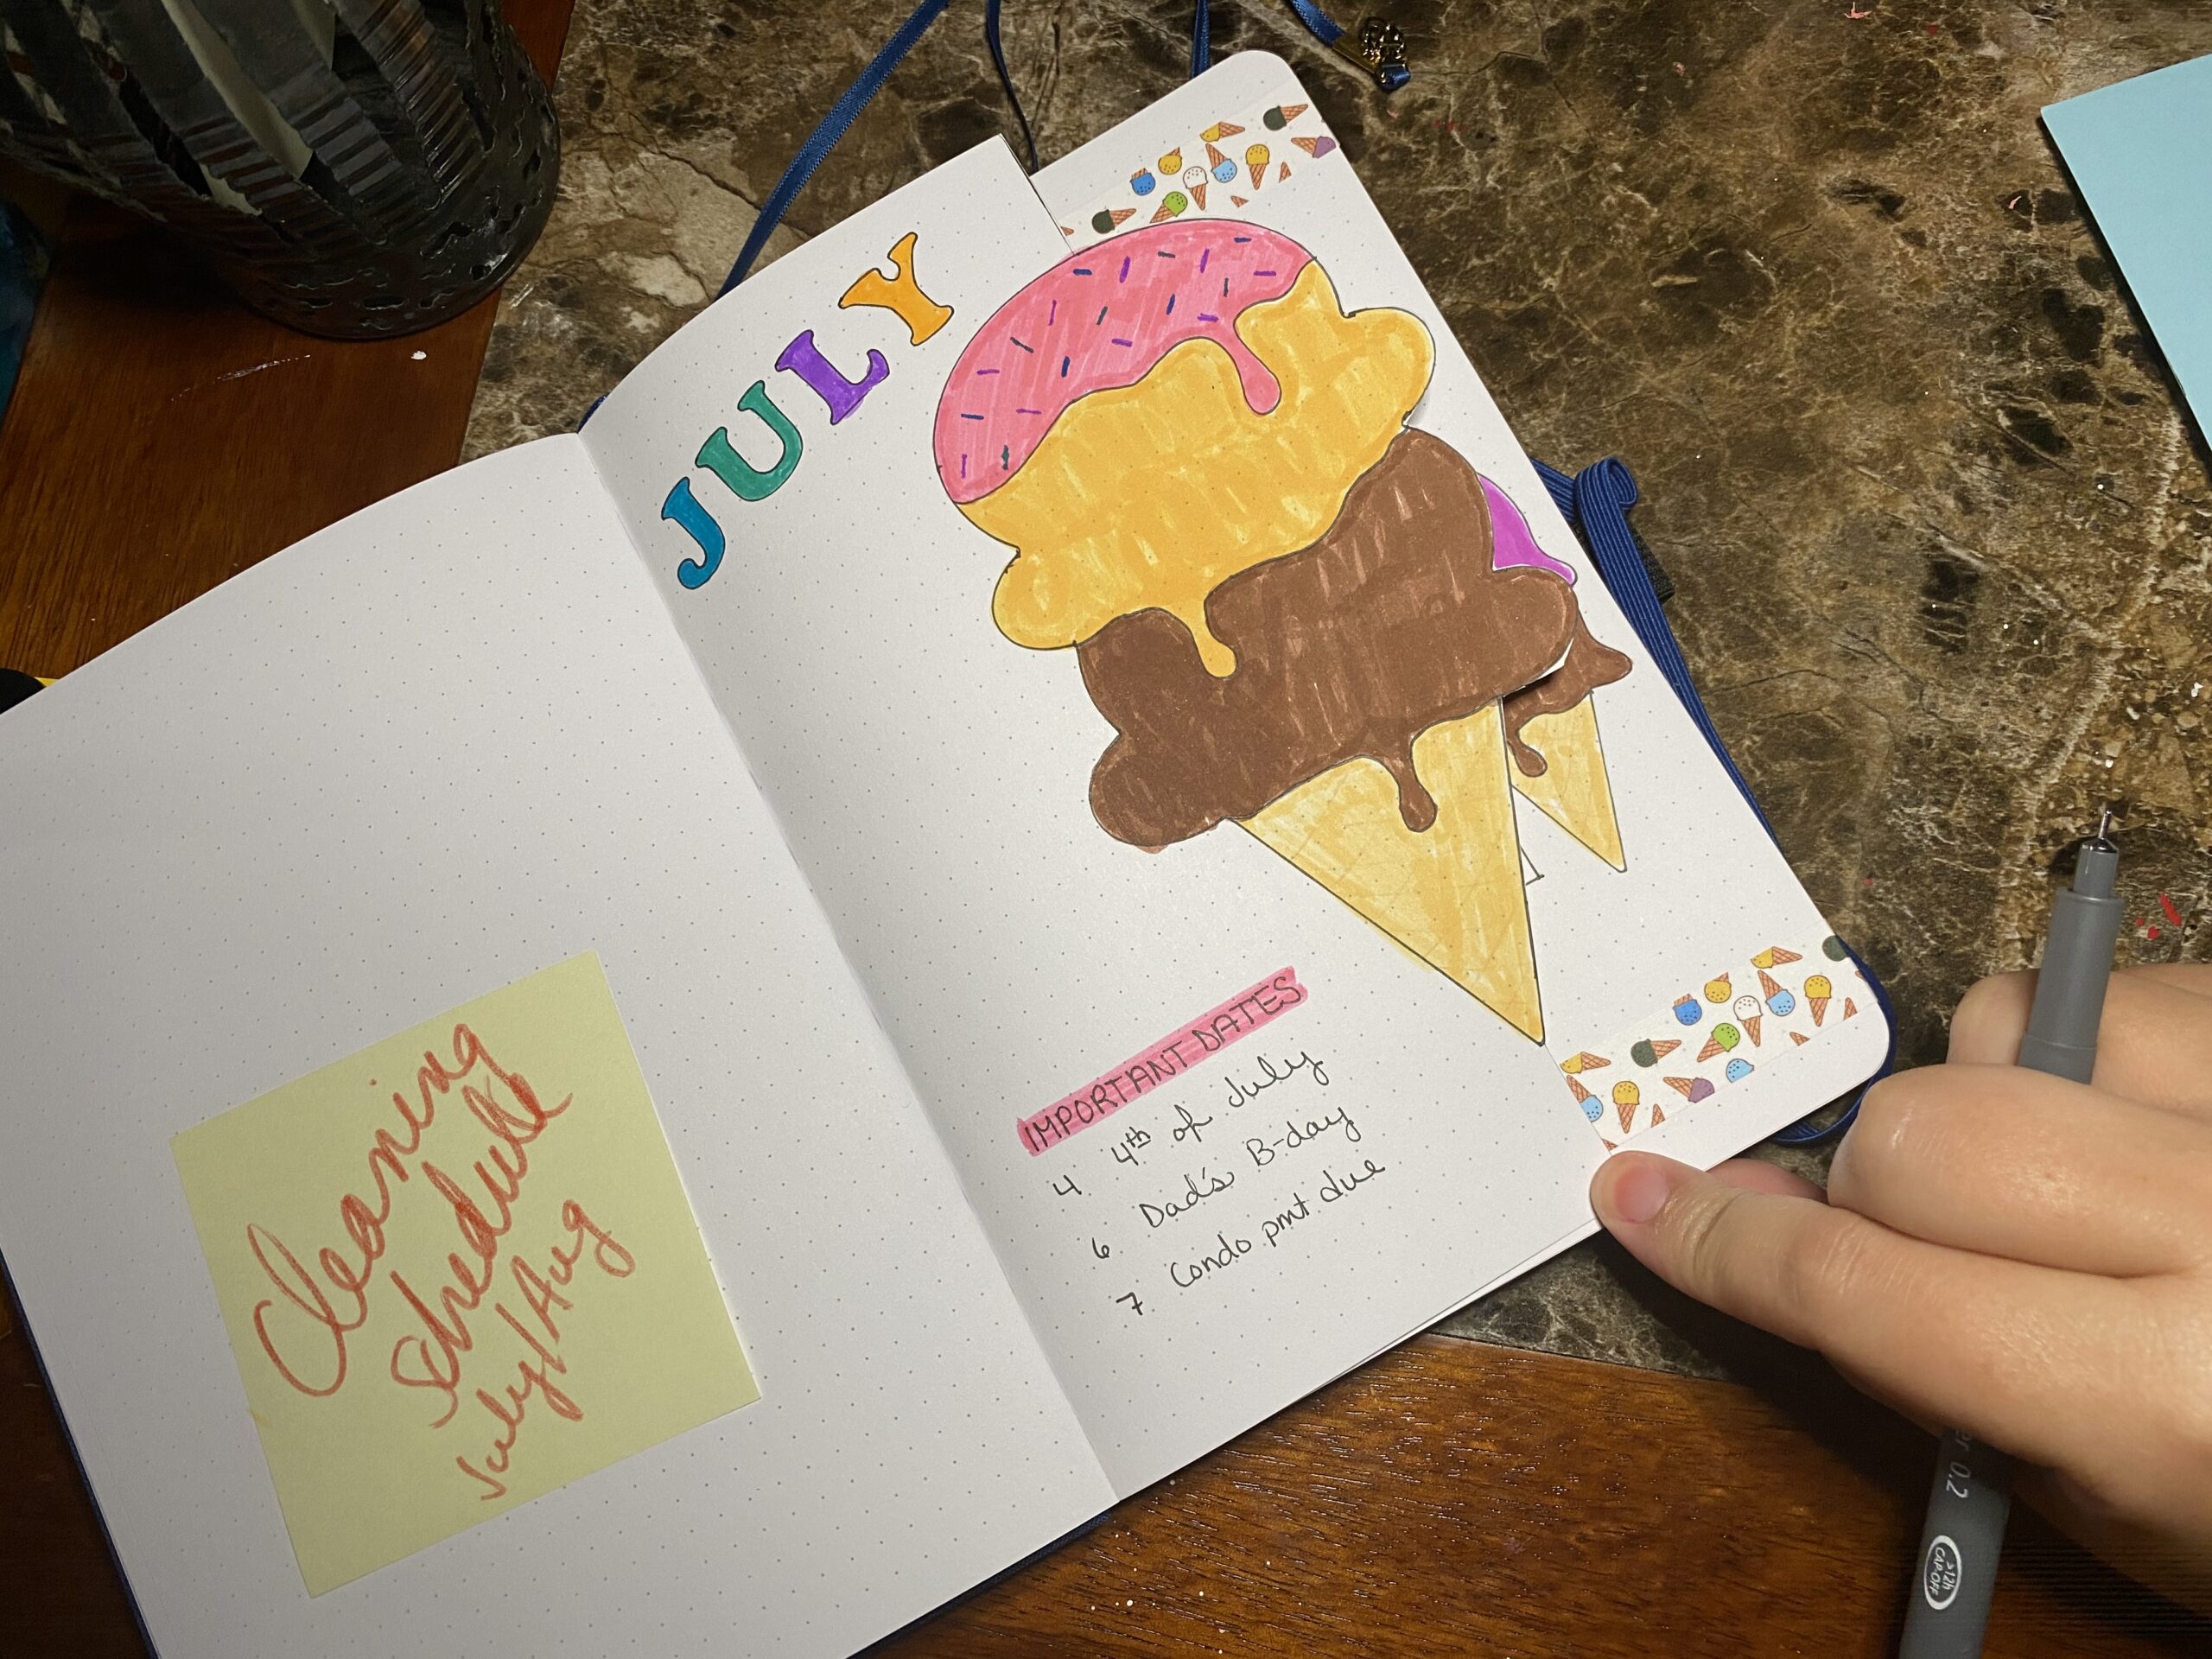 Cleaning
Schedule
July/Aug
JULY
IMPORTANT DATES
4 4th of July
6 Dad's B-day
7 Condo pmt due
er 0.2
>12h
CAP-OFF